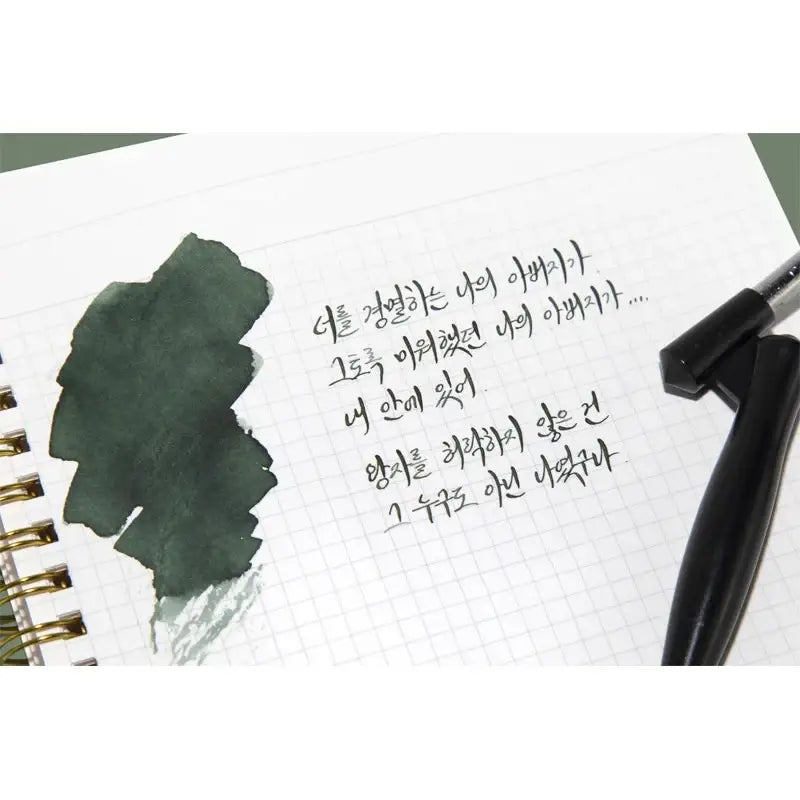 너를 경멸하는 나의 아버지가
그토록 미워했던 나의 아버지가....
내 안에 있어.
왕자를 허락하지 않은 건
그 누구도 아닌 나였구나.